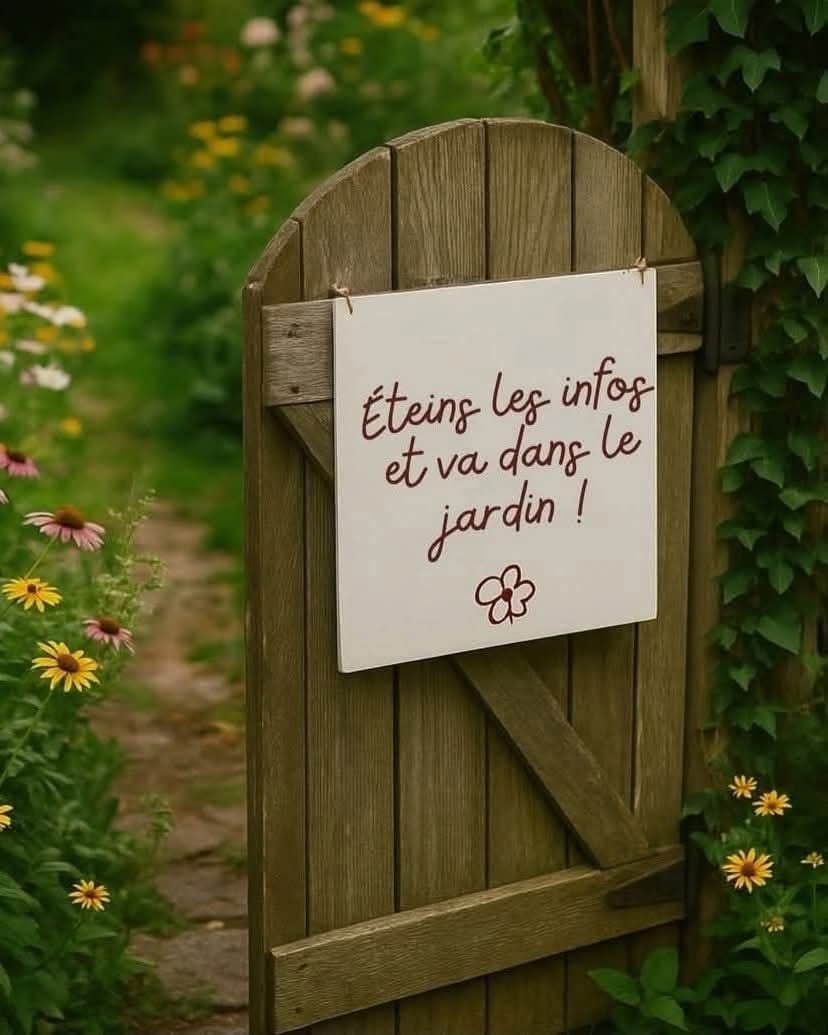 Éteins les infos
et va dans le
jardin !